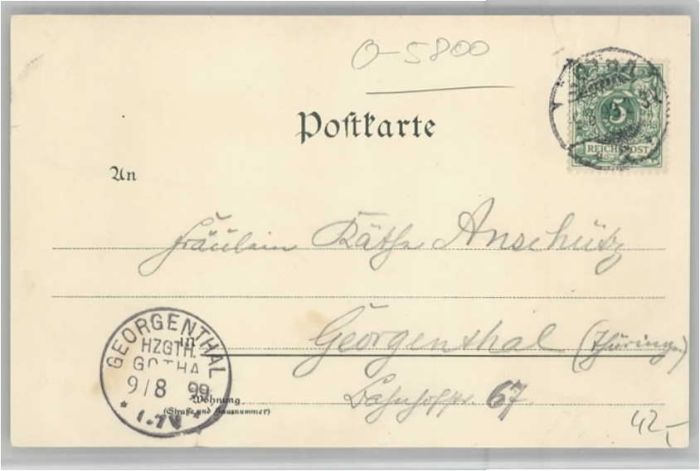 O-5800
5
REICHSPOST
Postkarte
An
Fräulein Käthe Anschütz
Georgenthal (Thüringen)
in
Bahnhofstr. 67
Wohnung
(Straße und Hausnummer)
GEORGENTHAL
HZGTH.
GOTHA
9/8 99
42,-